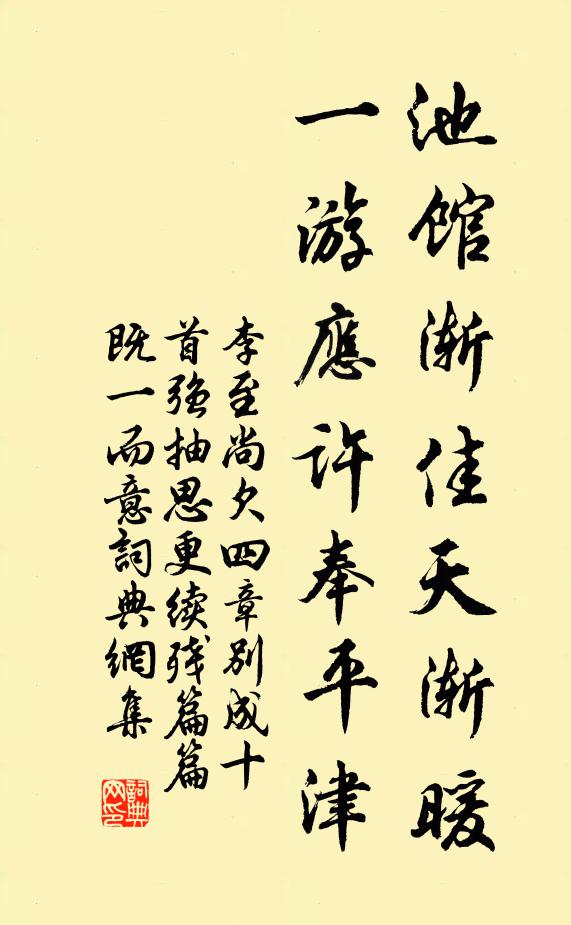 池馆渐佳天渐暖
一游應许奉平津
李至尚欠四章别成十
首强抽思更续残篇篇
既一而意詞典網集
詞典
网印